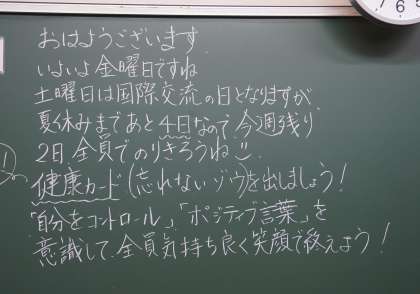 おはようございます
いよいよ金曜日ですね
土曜日は国際交流の日となりますが、
夏休みまであと4日なので、今週残り
2日、全員でのりきろうね
健康カード(忘れないゾウ)を出しましょう!
「自分をコントロール」、「ポジティブ言葉」を
意識して、全員気持ち良く笑顔で終えよう!